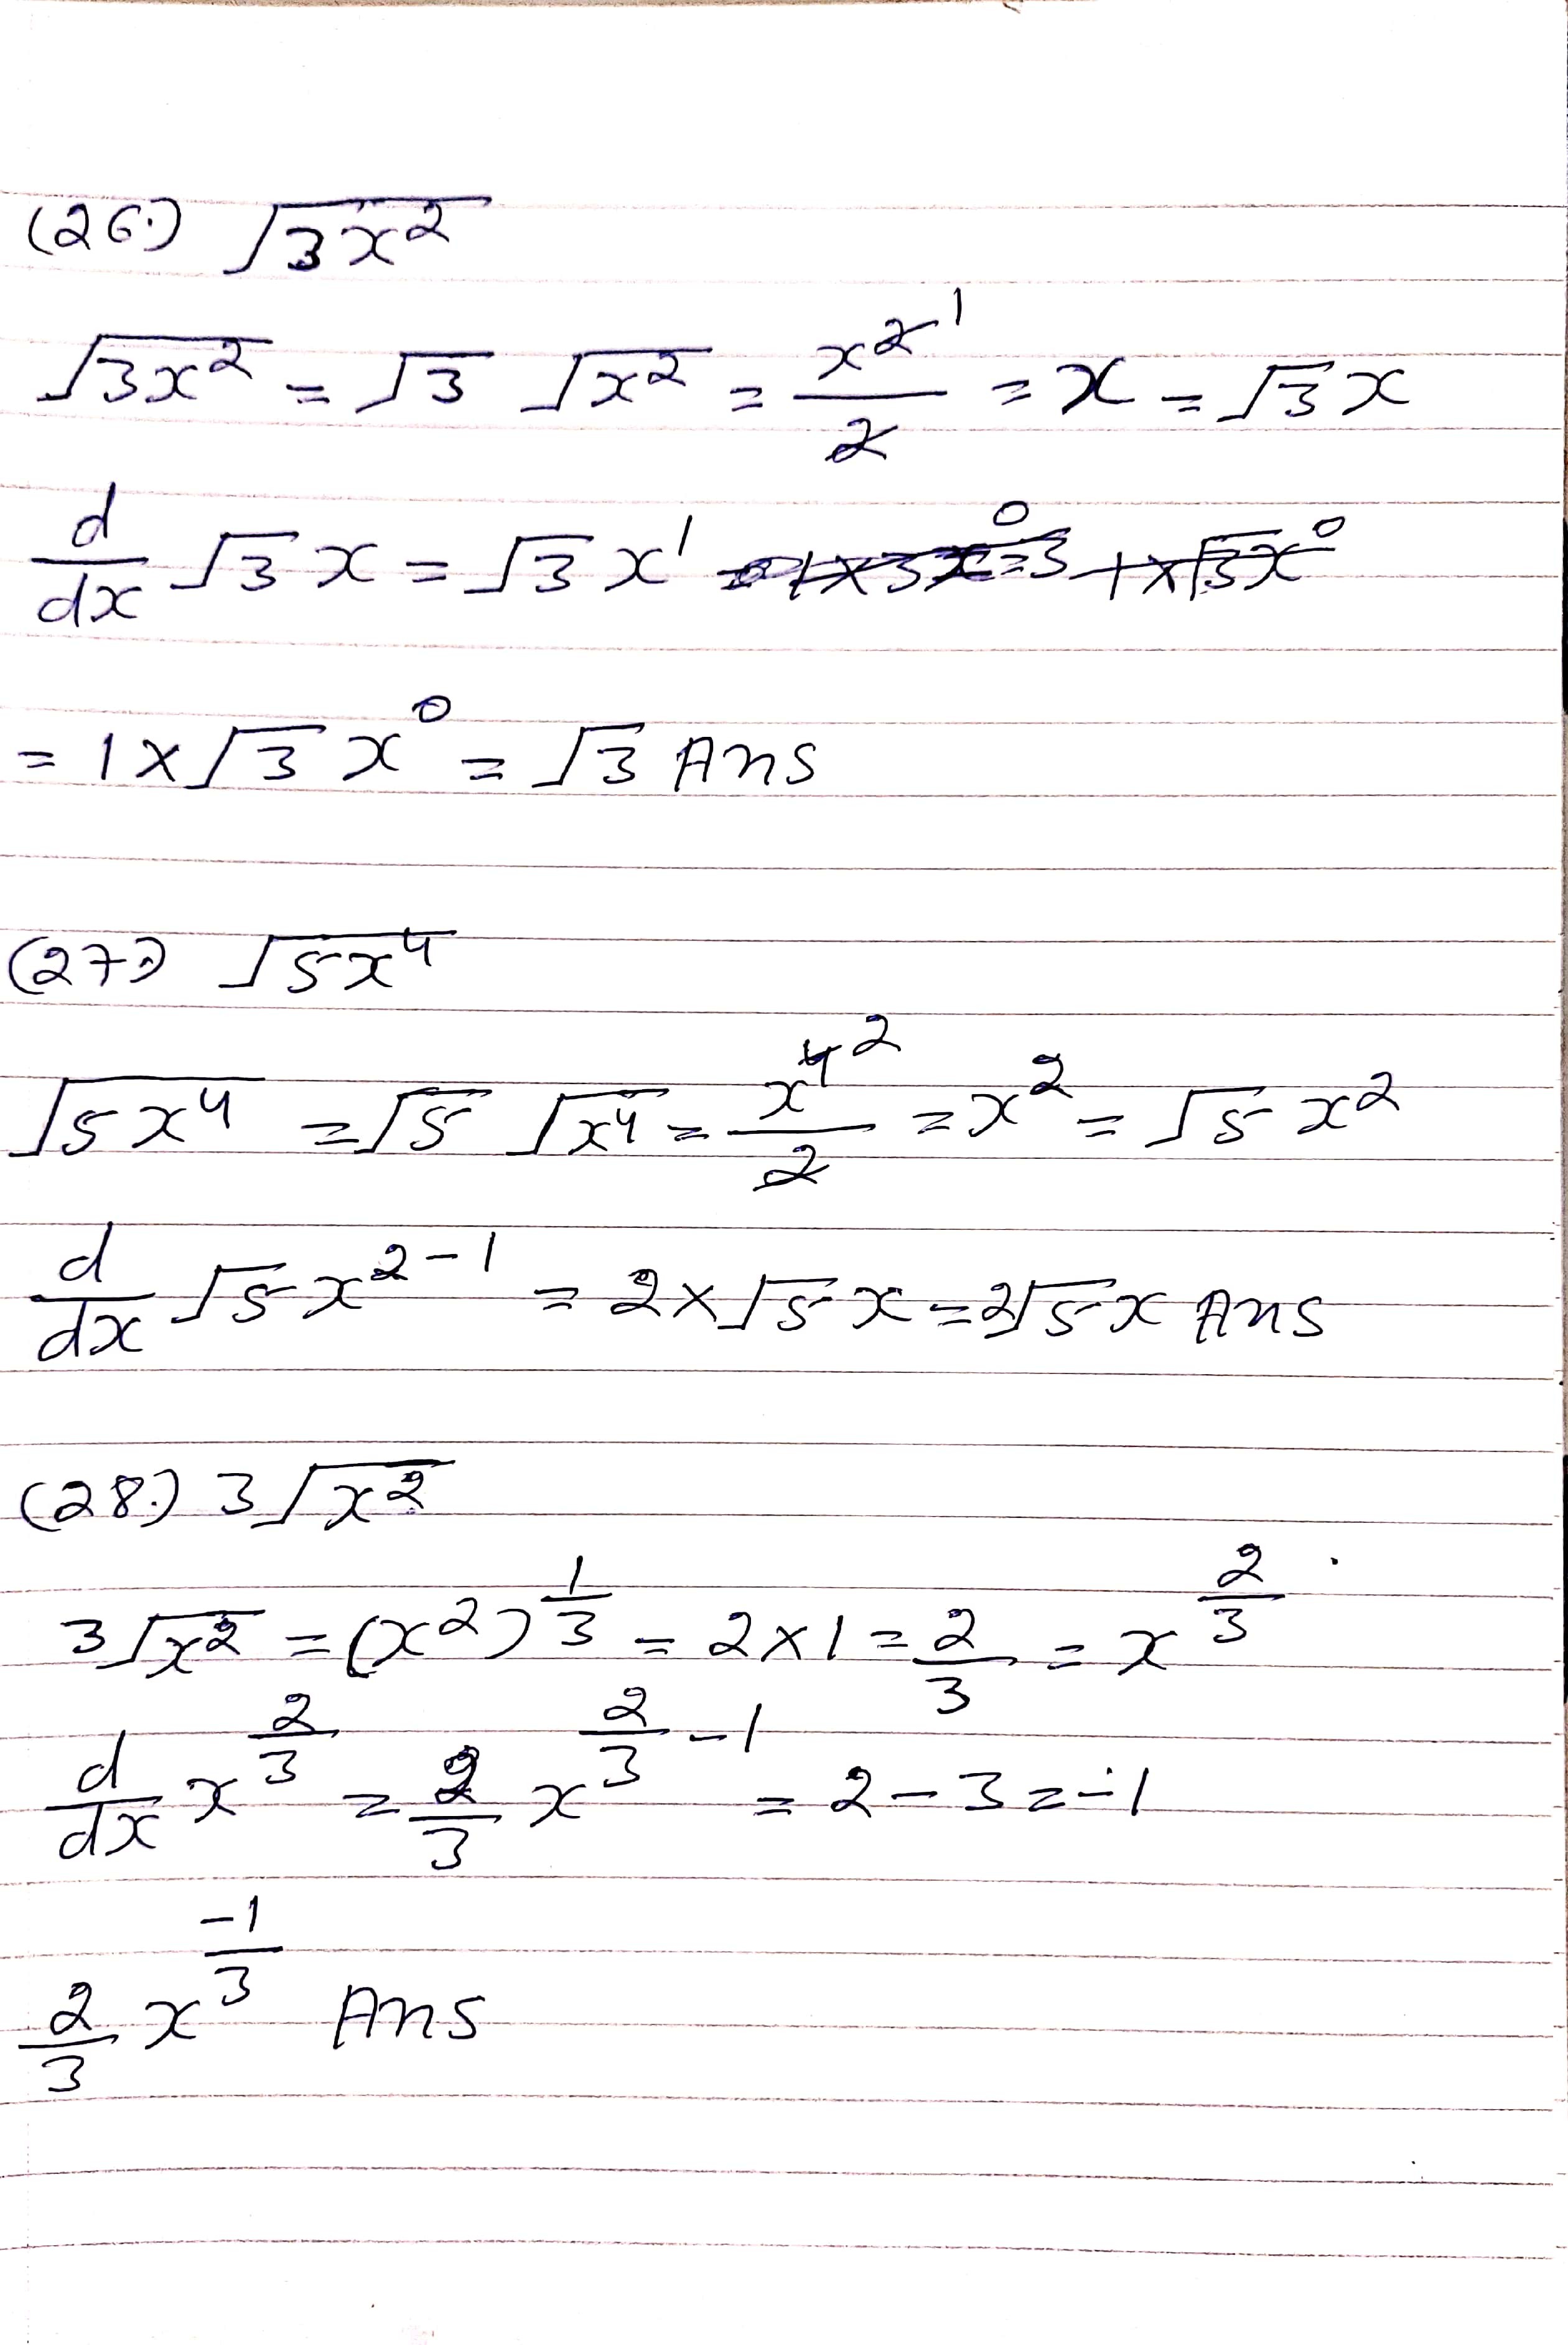 (26.) √3x²
√3x² = √3 √x² = x²/2 ¹ = x = √3 x
d/dx √3 x = √3 x¹
= 1 × √3 x⁰ = √3 Ans
(27.) √5x⁴
√5x⁴ = √5 √x⁴ = x⁴/2 ² = x² = √5 x²
d/dx √5 x²⁻¹ = 2 × √5 x = 2√5 x Ans
(28.) 3√x²
3√x² = (x²)^(1/3) = 2 × 1 = 2/3 = x^(2/3)
d/dx x^(2/3) = 2/3 x^(2/3 - 1) = 2 - 3 = -1
2/3 x^(-1/3) Ans